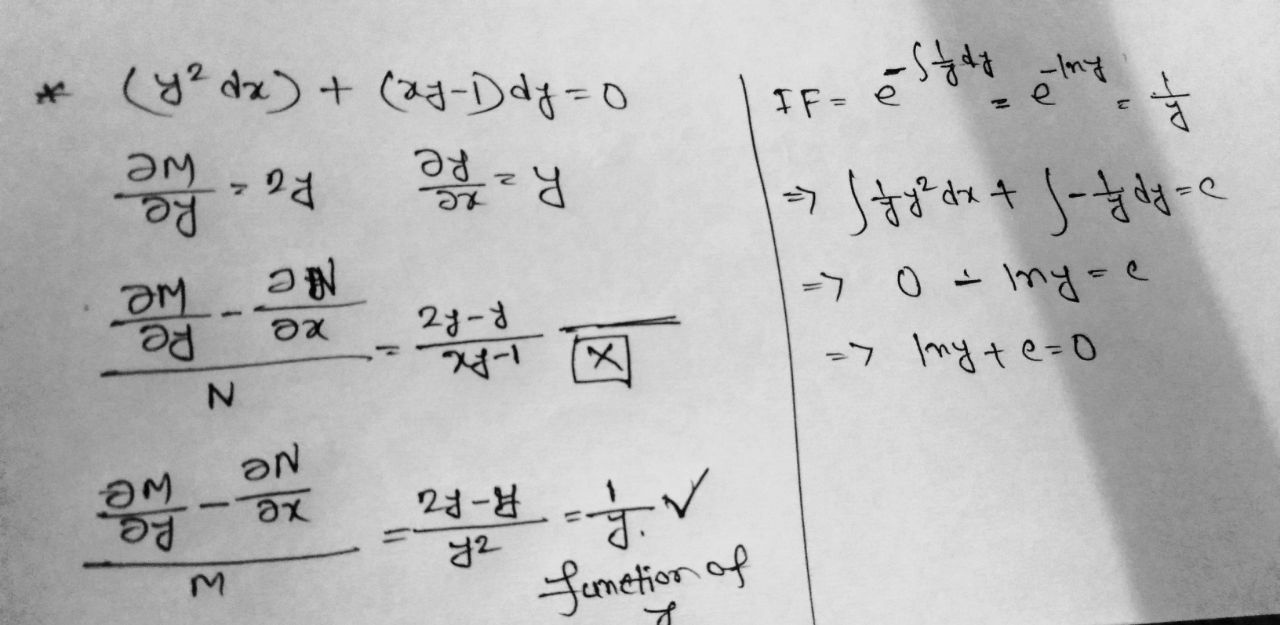 * (y² dx) + (xy-1) dy = 0
∂M/∂y = 2y ∂y/∂x = y
(∂M/∂y - ∂N/∂x)/N = (2y-y)/(xy-1) [X]
(∂M/∂y - ∂N/∂x)/M = (2y-y)/y² = 1/y. ✓
function of
y
IF = e^(-∫(1/y)dy) = e^(-lny) = 1/y
=> ∫(1/y)y² dx + ∫-(1/y) dy = c
=> 0 - lny = c
=> lny + c = 0